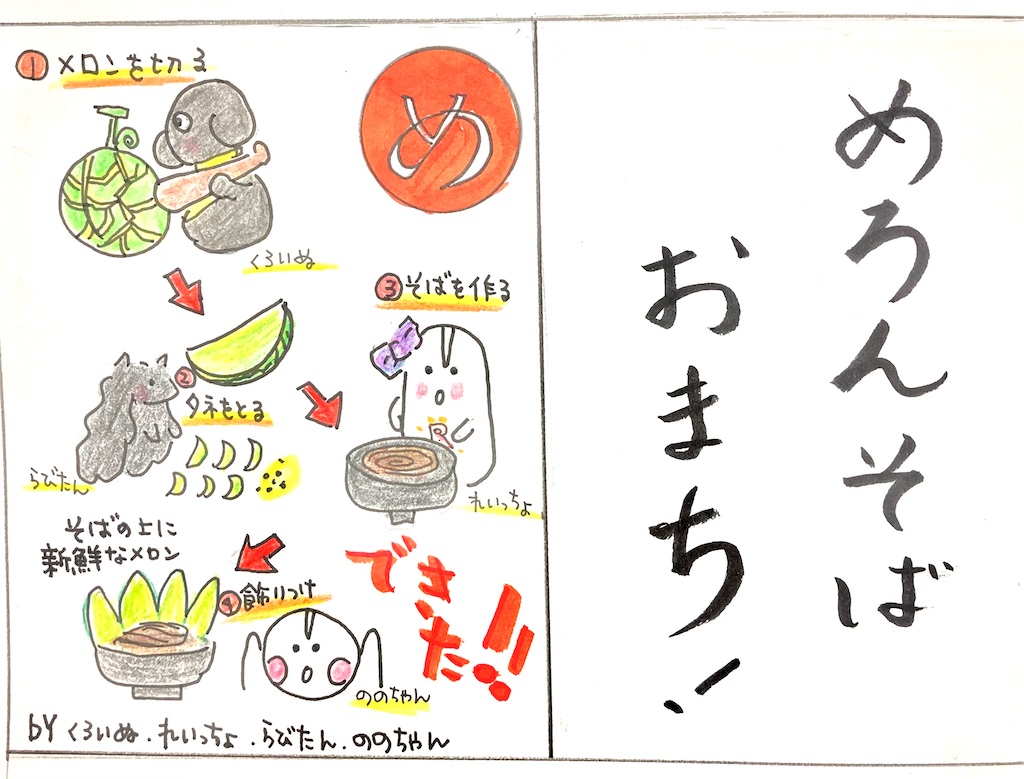 ① メロンを切る
め
くろいぬ
③ そばを作る
②
タネもとる
らびたん
R
れいっちょ
そばの上に
新鮮なメロン
④ 飾りつけ
できた!!
ののちゃん
by くろいぬ.れいっちょ.らびたん.ののちゃん
めろんそば
おまち!